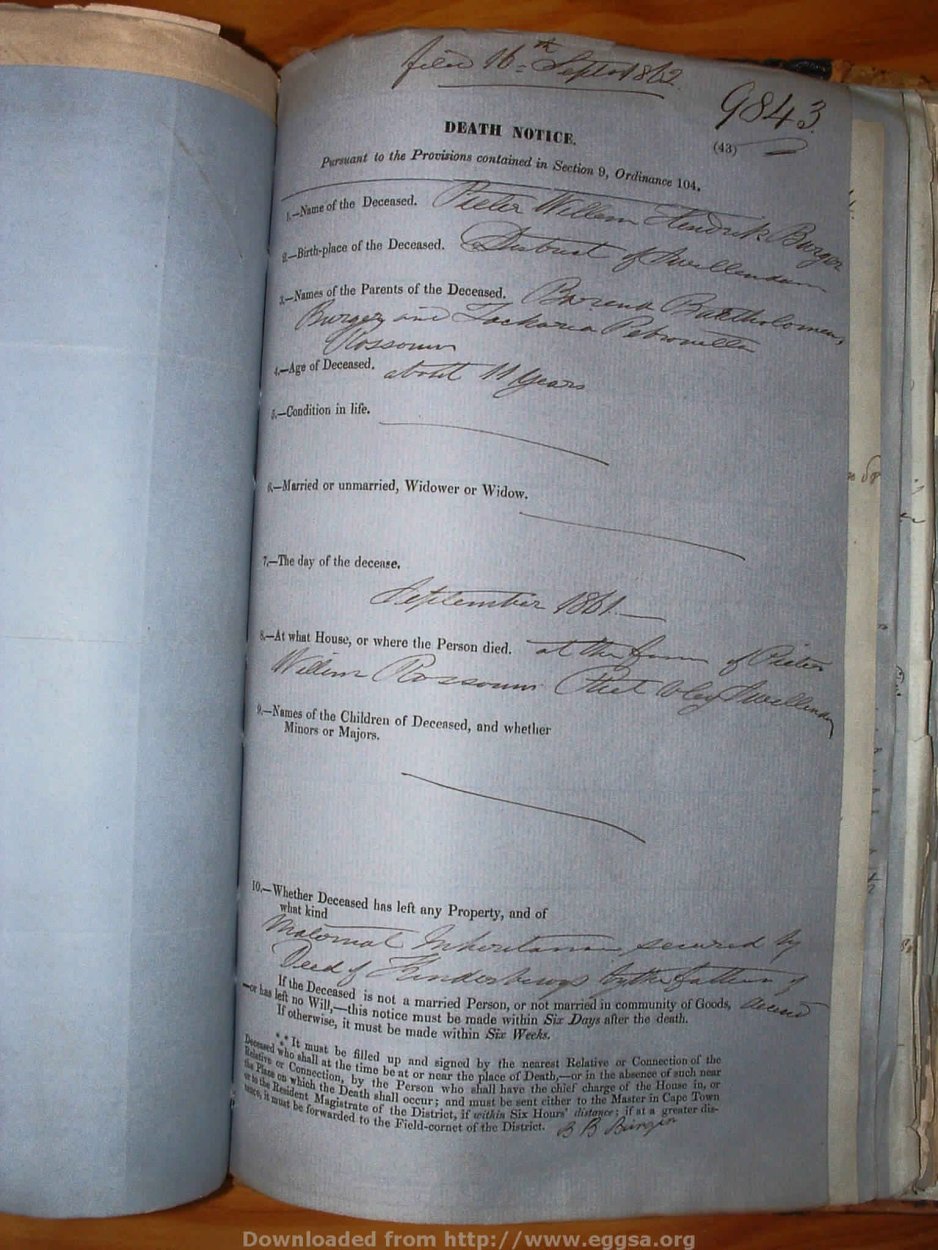 filed 16th Septr 1862
9843
(43)
DEATH NOTICE.
Pursuant to the Provisions contained in Section 9, Ordinance 104.
1.—Name of the Deceased. Pieter Willem Hendrik Burger
2.—Birth-place of the Deceased. District of Swellendam
3.—Names of the Parents of the Deceased. Barend Bartholomeus
Burger and Zacharia Petronella
Rossouw
4.—Age of Deceased. about 11 Years
5.—Condition in life.
6.—Married or unmarried, Widower or Widow.
7.—The day of the decease.
September 1861
8.—At what House, or where the Person died. at the farm of Pieter
Willem Rossouw Vley Swellendam
9.—Names of the Children of Deceased, and whether
Minors or Majors.
10.—Whether Deceased has left any Property, and of
what kind
Maternal Inheritance secured by
Deed of Kinderbewys by the father of
decend
If the Deceased is not a married Person, or not married in community of Goods,
—or has left no Will,—this notice must be made within Six Days after the death.
If otherwise, it must be made within Six Weeks.
*** It must be filled up and signed by the nearest Relative or Connection of the
Deceased who shall at the time be at or near the place of Death,—or in the absence of such near
Relative or Connection, by the Person who shall have the chief charge of the House in, or
the Place on which the Death shall occur; and must be sent either to the Master in Cape Town
or to the Resident Magistrate of the District, if within Six Hours' distance; if at a greater dis-
tance, it must be forwarded to the Field-cornet of the District. B B Burger
Downloaded from http://www.eggsa.org